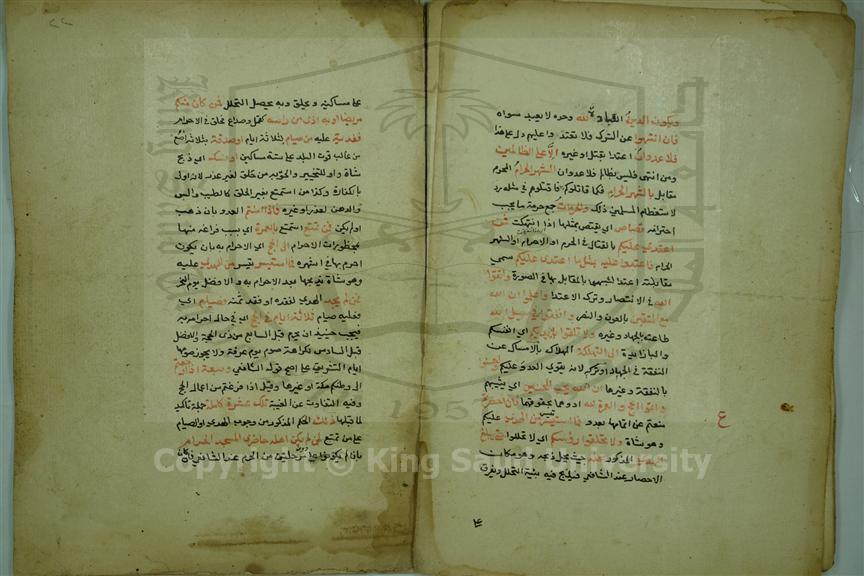 ويكون الدين العبادة لله وحده لا يعبد سواه
فان انتهوا عن الشرك فلا تعتدوا عليهم دل على هذا
فلا عدوان اعتدا بقتل او غيره الا على الظالمين
ومن انتهى فليس بظالم فلا عدوان الشهر الحرام المحرم
مقابل بالشهر الحرام فكما قاتلوكم فيه قاتلوهم في مثله رد
لاستعظام المسلمين ذلك والحرمات جمع حرمة ما يجب
احترامه قصاص اي يقتص بمثلها اذا انتهكت فمن
اعتدى عليكم بالقتال في الحرم او الاحرام او الشهر
الحرام فاعتدوا عليه بمثل ما اعتدى عليكم سمي
مقابلته اعتدا لشبهها بالمقابل بها في الصورة واتقوا
الله في الانتصار وترك الاعتدا واعلموا ان الله
مع المتقين بالعون والنصر وانفقوا في سبيل الله
طاعته بالجهاد وغيره ولا تلقوا بايديكم اي انفسكم
والبا زايدة الى التهلكة الهلاك بالامساك عن
النفقة في الجهاد او تركه لانه يقوي العدو عليكم واحسنوا
بالنفقة وغيرها ان الله يحب المحسنين اي يثيبهم
واتموا الحج والعمرة لله ادوهما بحقوقهما فان احصرتم
منعتم عن اتمامها بعدو فما استيسر تيسر من الهدي عليكم
وهو شاة ولا تحلقوا رؤسكم اي لا تتحللوا حتى يبلغ
الهدي المذكور محله حيث يحل ذبحه وهو مكان
الاحصار عند الشافعي فيذبح فيه بنية التحلل ويفرق
على مساكينه ويحلق وبه يحصل التحلل فمن كان منكم
مريضا او به اذى من راسه كقمل وصداع فحلق في الاحرام
ففدية عليه من صيام بثلاثة ايام او صدقة بثلاثة اصع
من غالب قوت البلد على ستة مساكين او نسك اي ذبح
شاة واو للتخيير والحق به من حلق لغير عذر لانه اولى
بالكفارة وكذا من استمتع بغير الحلق كالطيب واللبس
والدهن لعذر او غيره فاذا امنتم العدو بان ذهب
او لم يكن فمن تمتع استمتع بالعمرة اي بسبب فراغه منها
بمحظورات الاحرام الى الحج اي الاحرام به بان يكون
احرم بها في اشهره فما استيسر تيسر من الهدي عليه
وهو شاة يذبحها بعد الاحرام به والافضل يوم النحر
فمن لم يجد الهدي لفقده او فقد ثمنه فصيام اي
فعليه صيام ثلاثة ايام في الحج اي في حال احرامه به
فيجب حينئذ ان يحرم قبل السابع من ذي الحجة والافضل
قبل السادس لكراهة صوم يوم عرفة ولا يجوز صومها
ايام التشريق على اصح قولي الشافعي وسبعة اذا رجعتم
الى وطنكم مكة او غيرها وقيل اذا فرغتم من اعمال الحج
وفيه التفات عن الغيبة تلك عشرة كاملة جملة تأكيد
لما قبلها ذلك الحكم المذكور من وجوب الهدي او الصيام
على من تمتع لمن لم يكن اهله حاضري المسجد الحرام
بان لم يكونوا على مرحلتين من الحرم عند الشافعي فان كان
Copyright © King Saud University
1957